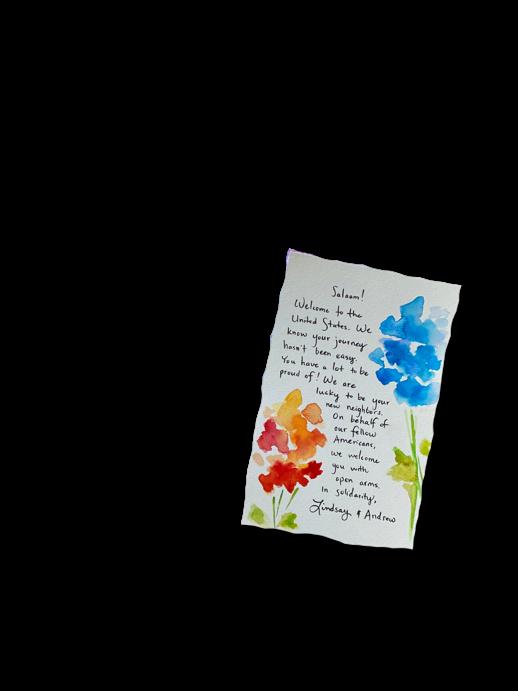 Salaam!
Welcome to the
United States. We
know your journey
hasn't been easy.
You have a lot to be
proud of! We are
lucky to be your
new neighbors.
On behalf of
our fellow
Americans,
we welcome
you with
open arms.
In solidarity,
Lindsay & Andrew